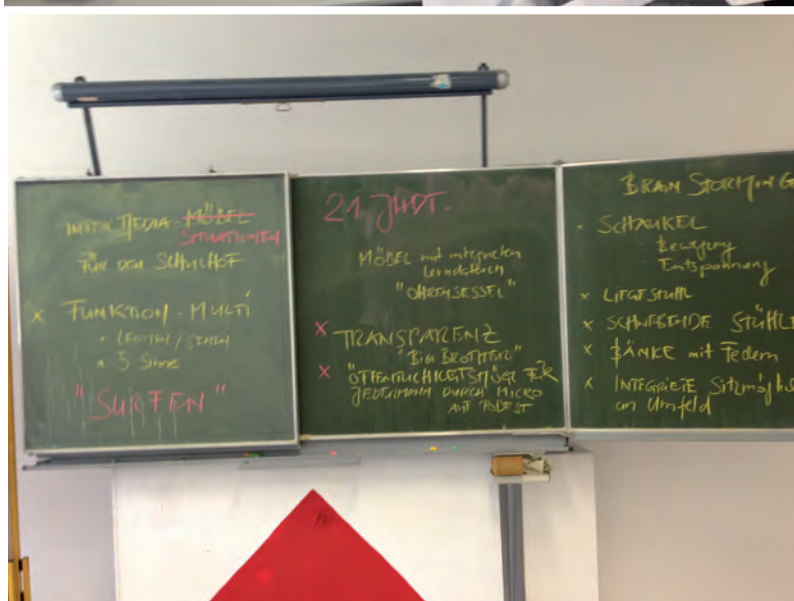 INTERMEDIA-MÖBEL
SITUATIONEN
FÜR DEN SCHULHOF
× FUNKTION-MULTI
× 5 Sinne
"SURFEN"
21. JHDT.
MÖBEL mit integrierten
"OHRENSESSEL"
× TRANSPARENZ
"BIG BROTHER"
× ÖFFENTLICHKEITSMÖGL FÜR
JEDERMANN DURCH MICRO
AUF PODEST
BRAIN STORMING
× SCHAUKEL
Bewegung
Entspannung
× LIEGESTUHL
× SCHWEBENDE STÜHLE
× BÄNKE mit Federn
× INTEGRIERTE
an Umfeld